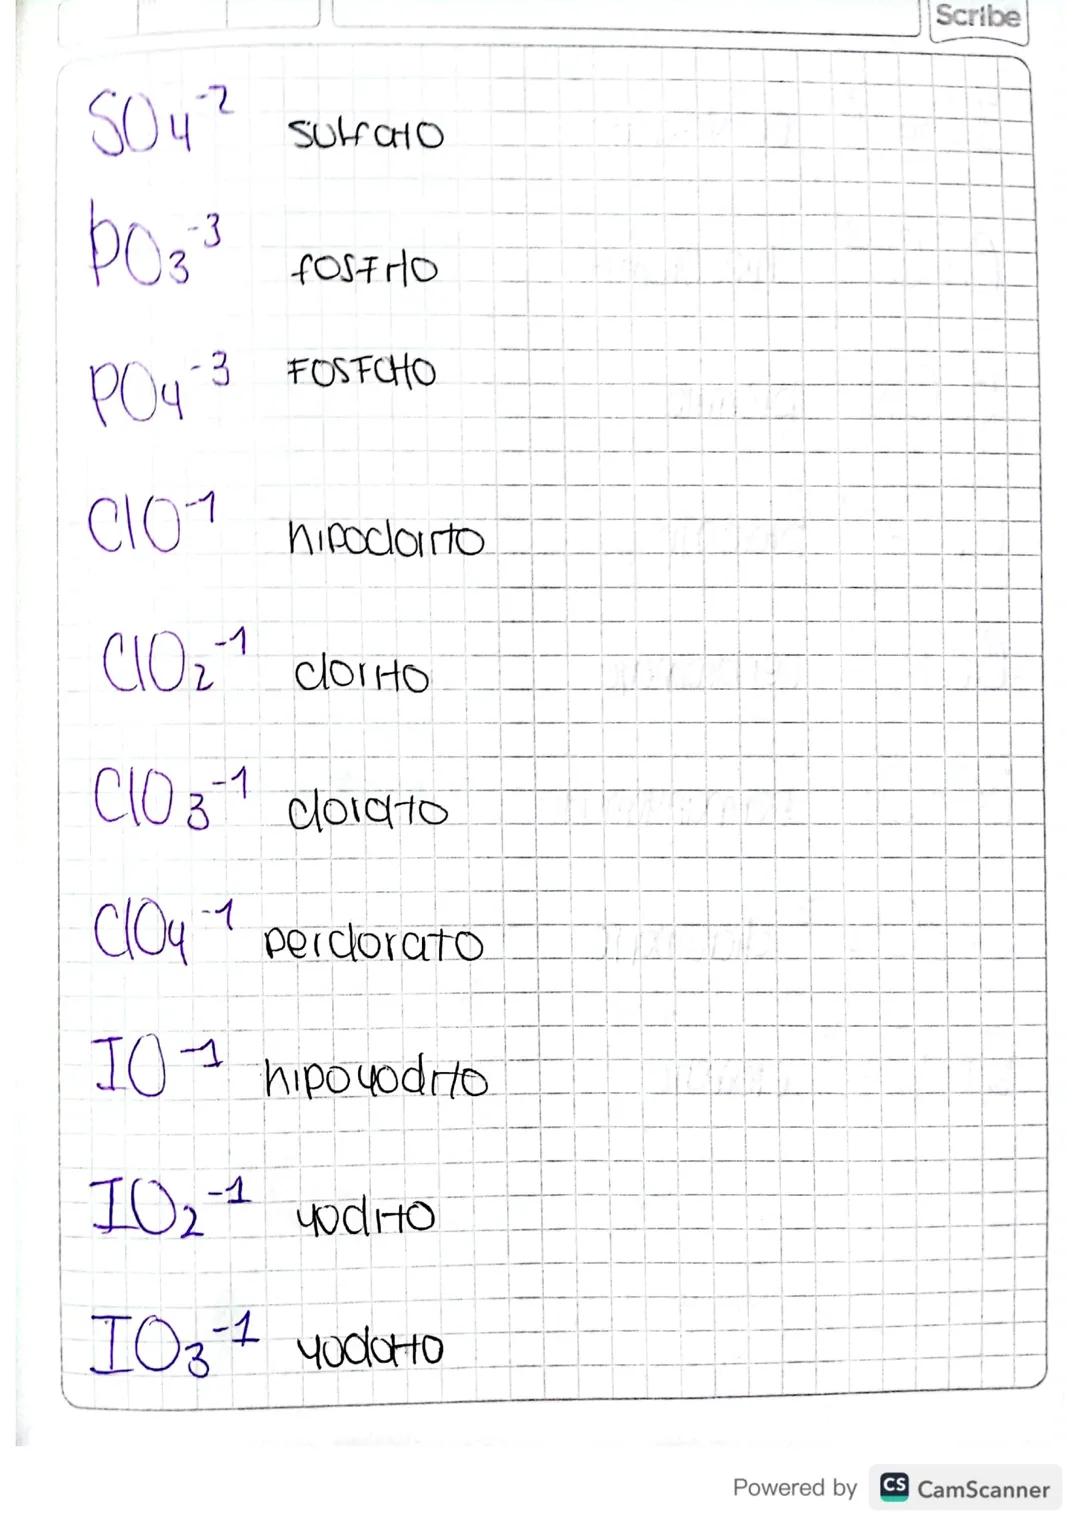 Scribe
SO₄⁻² sulfato
PO₃⁻³ fosfito
PO₄⁻³ FOSFato
ClO⁻¹ hipoclorito
ClO₂⁻¹ clorito
ClO₃⁻¹ clorato
ClO₄⁻¹ perclorato
IO⁻¹ hipoyodito
IO₂⁻¹ yodito
IO₃⁻¹ yodato
Powered by CS CamScanner